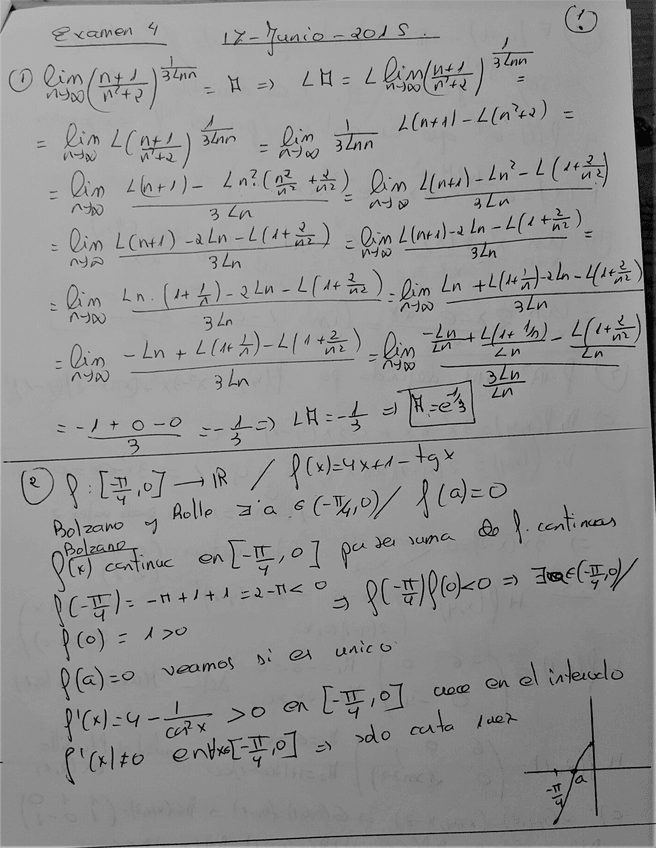 Examen 4 17-Junio-2015. (1)
① lim n→∞ ((n+1)/(n²+2))^(1/(3Ln n)) = A ⇒ LA = L lim n→∞ ((n+1)/(n²+2))^(1/(3Ln n)) =
= lim n→∞ L((n+1)/(n²+2))^(1/(3Ln n)) = lim n→∞ 1/(3Ln n) L(n+1) - L(n²+2) =
= lim n→∞ (L(n+1) - Ln²·(n²/n² + 2/n²))/(3Ln) = lim n→∞ (L(n+1) - Ln² - L(1+2/n²))/(3Ln)
= lim n→∞ (L(n+1) - 2Ln - L(1+2/n²))/(3Ln) = lim n→∞ (L(n+1) - 2Ln - L(1+2/n²))/(3Ln) =
= lim n→∞ (Ln·(1+1/n) - 2Ln - L(1+2/n²))/(3Ln) = lim n→∞ (Ln + L(1+1/n) - 2Ln - L(1+2/n²))/(3Ln)
= lim n→∞ (-Ln + L(1+1/n) - L(1+2/n²))/(3Ln) = lim n→∞ (-Ln/Ln + L(1+1/n)/Ln - L(1+2/n²)/Ln)/(3Ln/Ln)
= (-1+0-0)/3 = -1/3 ⇒ LA = -1/3 ⇒ A = e^(-1/3)
② f: [-π/4, 0] → ℝ / f(x)=4x+1-tgx
Bolzano y Rolle ∃ a ∈ (-π/4, 0) / f(a)=0
Bolzano
f(x) continua en [-π/4, 0] por ser suma de f. continuas
f(-π/4) = -π+1+1 = 2-π < 0 ⇒ f(-π/4) f(0) < 0 ⇒ ∃ a ∈ (-π/4, 0) /
f(0) = 1 > 0
f(a)=0 veamos si es unico
f'(x) = 4 - 1/cos²x > 0 en [-π/4, 0] crece en el intervalo
f'(x) ≠ 0 en ∀x∈[-π/4, 0] ⇒ solo corta 1 vez
-π/4 a